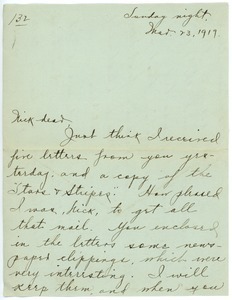 132
Sunday night,
Mar 23, 1919.
Nick dear
Just think I received
five letters from you yes-
terday, and a copy of the
"Stars & Stripes". How pleased
I was, Nick, to get all
that mail. You enclosed
in the letters some news-
paper clippings, which were
very interesting. I will
keep them and when you